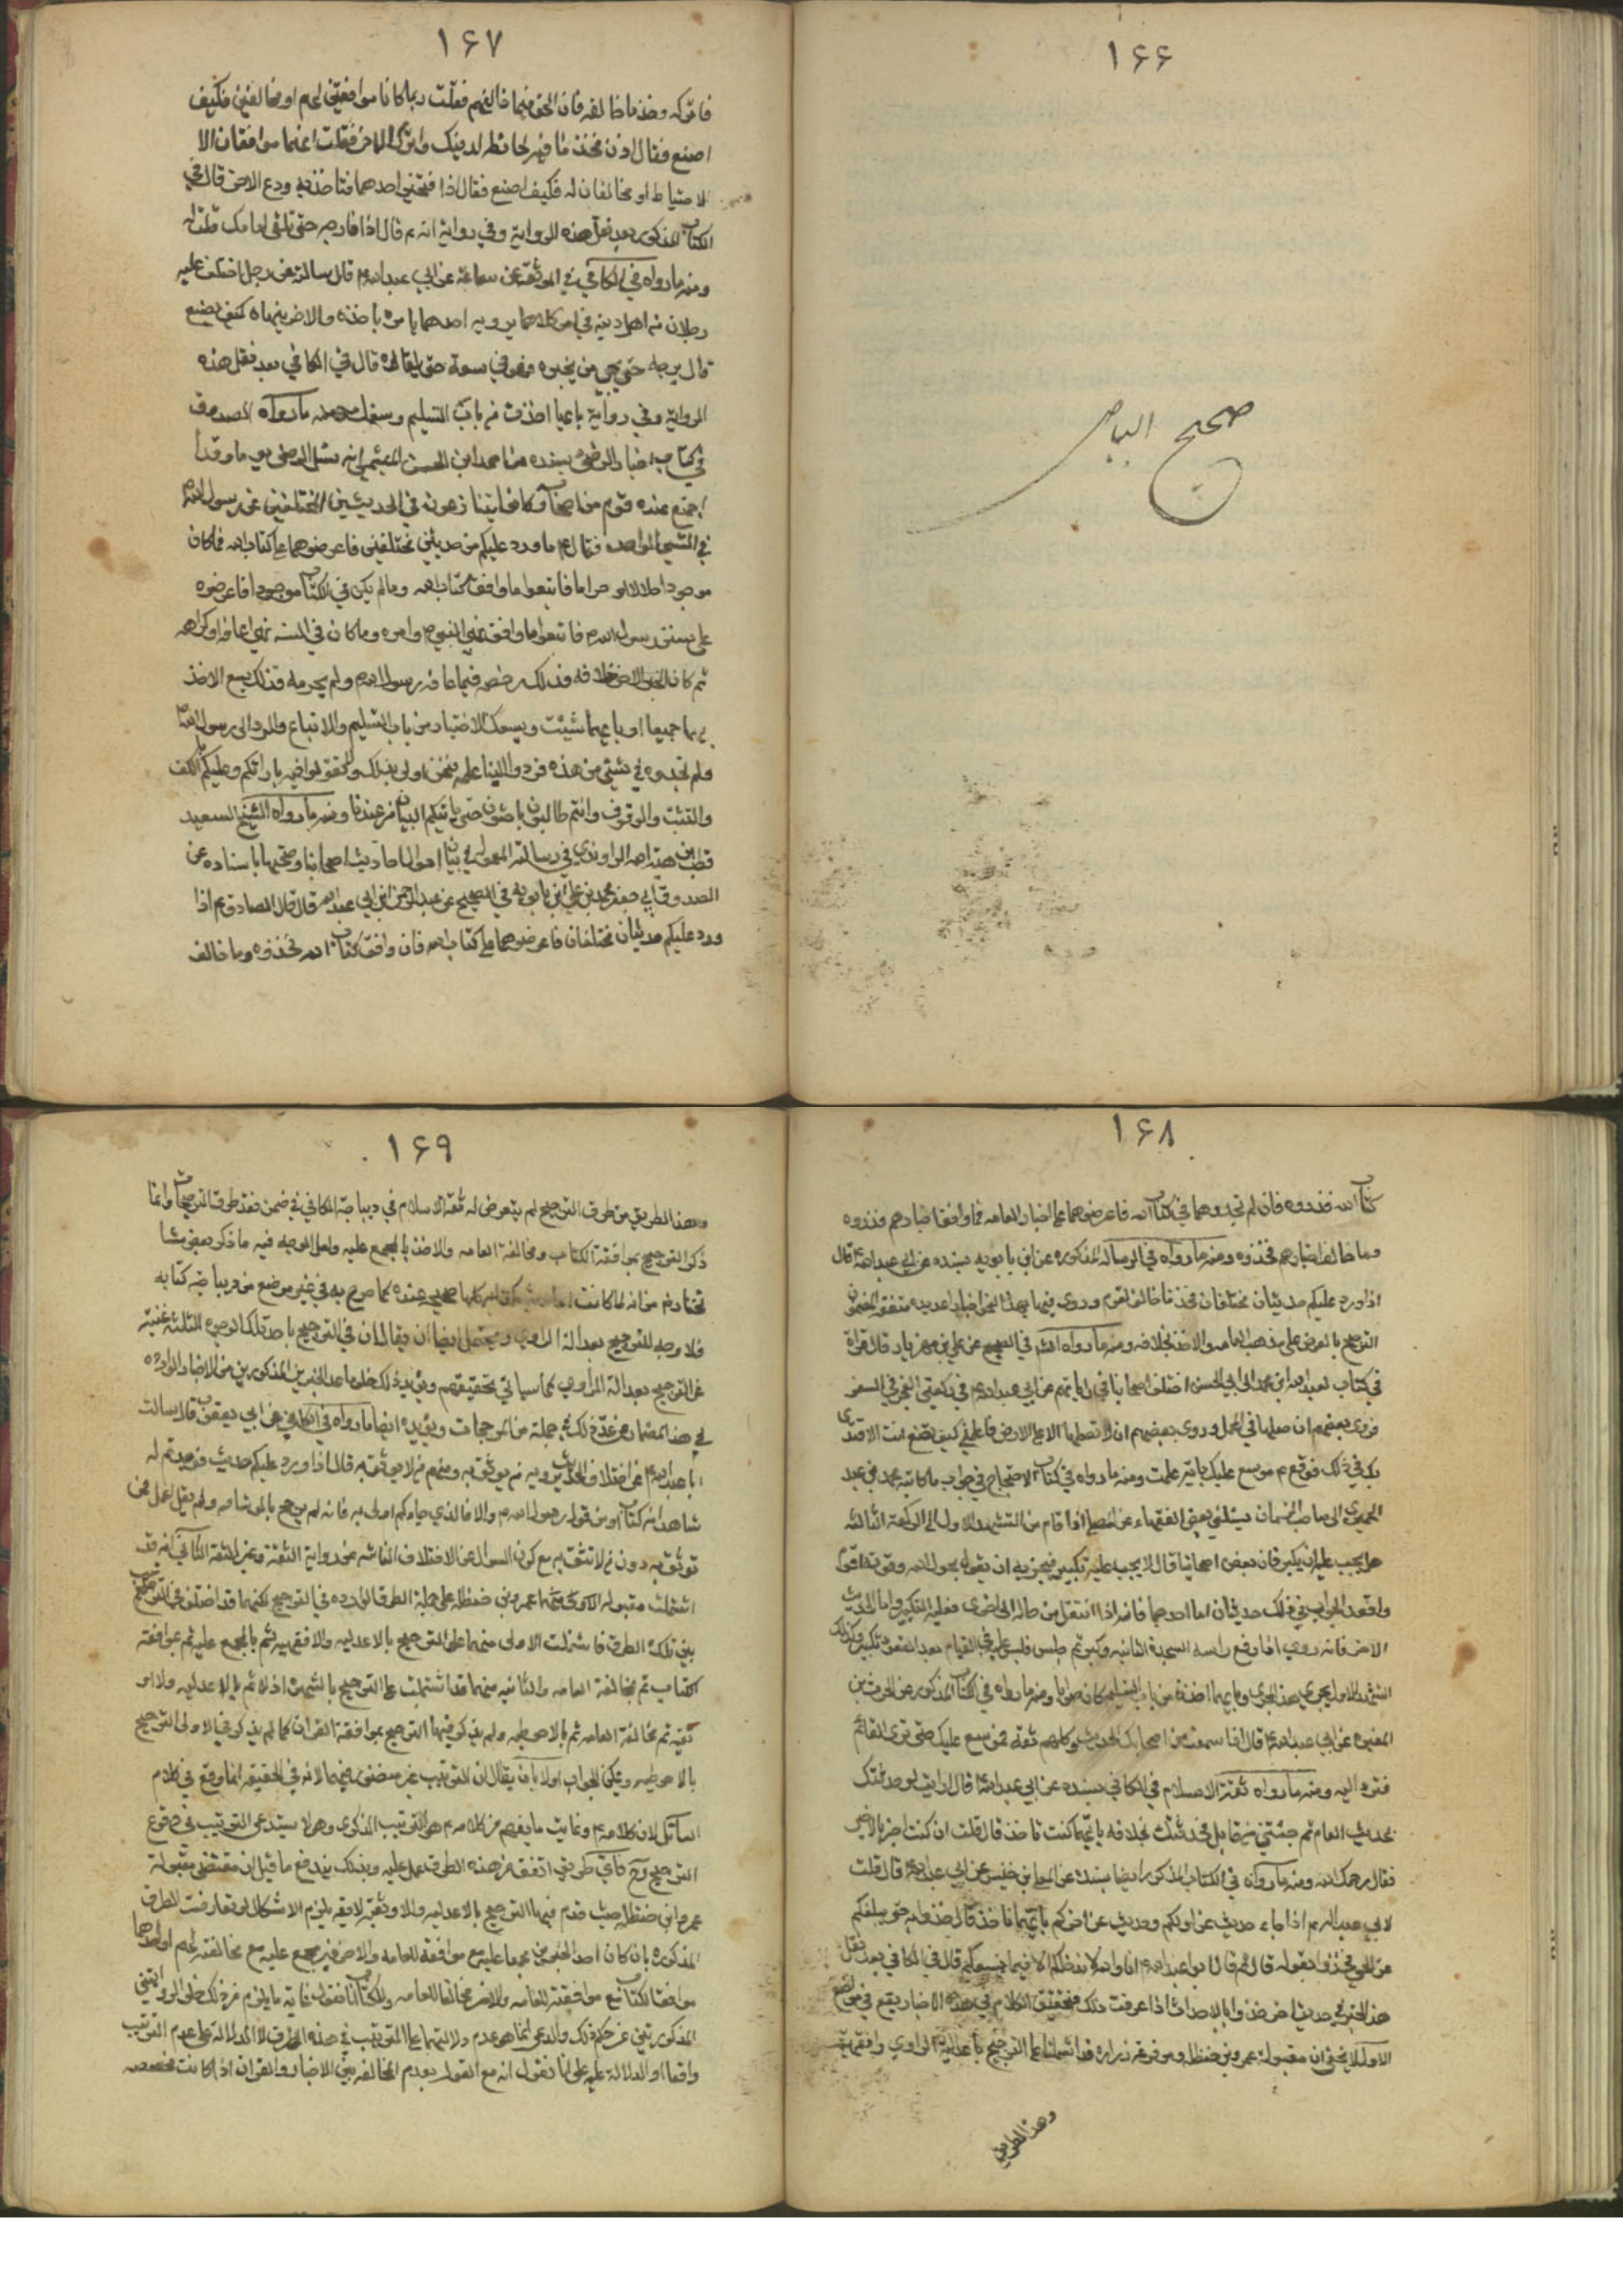 ۱۶۶
صحيح البياض
۱۶۷
فاتركه وخذ ما خالفه فان الحق فيما خالفهم فقلت ربما كانا موافقين لهم او مخالفين فكيف
اصنع فقال اذن فخذ بما فيه الحائطة لدينك واترك الاخر فقلت انهما موافقان الا
للاحتياط او مخالفان له فكيف اصنع فقال اذا فتخير احدهما فتاخذ به ودع الاخر قال في
الكتاب المذكور بعد نقل هذه الرواية وفي رواية انه ع قال اذا فارجه حتى تلقى امامك فتسئله
ومنه ما رواه في الكافي في الموثق عن سماعة عن ابي عبدالله ع قال سالته عن رجل اختلف عليه
رجلان من اهل دينه في امر كلاهما يرويه احدهما يامره باخذه والاخر ينهاه كيف يصنع
قال يرجه حتى يجيء من يخبره فهو في سعة حتى يلقاه قال في الكافي بعد نقل هذه
الرواية وفي رواية بايهما اخذت من باب التسليم وسعك ومنه ما رواه الصدوق
في كتاب اخبار الرضا ع بسنده عن احمد ابن الحسن الميثمي انه سئل الرضا ع يوما وقد
اجتمع عنده قوم من اصحابه وكانوا يتنازعون في الحديثين المختلفين عن رسول الله ص
في الشيء الواحد فقال ع ما ورد عليكم من حديثين مختلفين فاعرضوهما على كتاب الله فما كان
موجودا حلالا او حراما فاتبعوا ما وافق كتاب الله وما لم يكن في الكتاب موجودا فاعرضوه
على سنن رسول الله ص فاتبعوا ما وافق نهي النبي ص وامره وما كان في السنة نهي اعافة او كراهة
ثم كان الخبر الاخر خلافه فذلك رخصة فيما عافه رسول الله ص ولم يحرمه فذلك يسع الاخذ
بهما جميعا او بايهما شئت ويسعك الاختيار من باب التسليم والاتباع والرد الى رسول الله ص
وما لم تجدوه في شيء من هذه فردوا الينا علمه فنحن اولى بذلك ولا تقولوا فيه بارائكم وعليكم الكف
والتثبت والوقوف وانتم طالبون باحثون حتى ياتيكم البيان من عندنا ومنه ما رواه الشيخ السعيد
قطب بن هبة الله الراوندي في رسالته المعمولة في بيان احوال احاديث اصحابنا وصحتها باسناده عن
الصدوق ابي جعفر محمد بن علي ابن بابويه في الصحيح عن عبدالرحمن ابن ابي عبدالله قال قال الصادق ع اذا
ورد عليكم حديثان مختلفان فاعرضوهما على كتاب الله فان وافق كتاب الله فخذوه وما خالف
۱۶۸
كتاب الله فذروه فان لم تجدوهما في كتاب الله فاعرضوهما على اخبار العامه فما وافق اخبارهم فذروه
وما خالف اخبارهم فخذوه ومنه ما رواه في الرسالة المذكوره عن ابن بابويه بسنده عن ابي عبدالله ع قال
اذا ورد عليكم حديثان مختلفان فخذ بما خالف القوم وروى فيها بهذا النحو اخبارا عديده متفقة المضمون
الترجيح بالعرض على مذهب العامه والاخذ بخلافه ومنه ما رواه الشيخ في الصحيح عن علي بن مهزيار قال قرات
في كتاب لعبدالله ابن محمد الى ابي الحسن ع اختلف اصحابنا في رواياتهم عن ابي عبدالله ع في ركعتي الفجر في السفر
فروى بعضهم ان صلها في المحمل وروى بعضهم ان لا تصلها الا على الارض فاعلمني كيف تصنع انت لاقتدي
بك في ذلك فوقع ع موسع عليك باية عملت ومنه ما رواه في كتاب الاحتجاج في جواب مكاتبة محمد بن عبد
الحميري الى صاحب الزمان يسئلني بعض الفقهاء عن المصلي اذا قام من التشهد الاول الى الركعة الثالثه
هل يجب عليه ان يكبر فان بعض اصحابنا قال لا يجب عليه تكبير فيجزيه ان يقول بحول الله وقوته اقوم
واقعد الجواب في ذلك حديثان اما احدهما فانه اذا انتقل من حالة الى اخرى فعليه التكبير واما الحديث
الاخر فانه روي اذا رفع راسه من السجدة الثانيه وكبر ثم جلس ثم قام فليس عليه في القيام بعد القعود تكبير وكذلك
التشهد الاول يجري هذا المجرى وبايهما اخذت من باب التسليم كان صوابا ومنه ما رواه في الكتاب المذكور عن الحرث بن
المغيره عن ابي عبدالله ع قال اذا سمعت من اصحابك الحديث وكلهم ثقة فموسع عليك حتى ترى القائم
فترد اليه ومنه ما رواه ثقة الاسلام في الكافي بسنده عن ابي عبدالله ع قال ارايت لو حدثتك
بحديث العام ثم جئتني من قابل فحدثتك بخلافه بايهما كنت تاخذ قال قلت ان كنت اخذ بالاخير
فقال رحمك الله ومنه ما رواه في الكتاب المذكور ايضا بسنده عن المعلى بن خنيس عن ابي عبدالله ع قال قلت
لابي عبدالله ع اذا جاء حديث عن اولكم وحديث عن اخركم بايهما ناخذ قال خذوا به حتى يبلغكم
عن الحي فخذوا بقوله قال ثم قال ابو عبدالله ع انا والله لا ندخلكم الا فيما يسعكم قال في الكافي بعد نقل
هذا الخبر وفي حديث اخر خذوا بالاحدث اذا عرفت ذلك فتحقيق الكلام في هذه الاخبار يقع في مواضع
الاول لا يخفى ان مقبولة عمر بن حنظله ومرفوعة زراره قد اشتملتا على الترجيح باعدلية الراوي وافقهيته
وهذا الطريق
۱۶۹
وهذا الطريق من طرق الترجيح لم يتعرض له ثقة الاسلام في ديباجة الكافي في ضمن نقد طرق الترجيحات وانما
ذكر الترجيح بموافقة الكتاب ومخالفة العامه والاخذ بالمجمع عليه ولعل الوجه فيه ما ذكره بعض مشا
يخنا ره من انه لما كانت احاديث كتابه كلها صحيحه عنده كما صرح به في غير موضع من ديباجة كتابه
فلا وجه للترجيح بعدالة الراوي ويحتمل ايضا ان يقال ان في الترجيح باحد تلك الوجوه الثلثه غنية
عن الترجيح بعدالة الراوي كما سياتي تحقيقه ويؤيد ذلك خلو ما عدا الخبرين المذكورين من الاخبار الوارده
في هذا المضمار عن عد ذلك في جملة من المرجحات ويؤيده ايضا ما رواه في الكافي عن ابن ابي يعفور قال سالت
ابا عبدالله ع عن اختلاف الحديث يرويه من يوثق به ومنهم من لا يوثق به قال اذا ورد عليكم حديث فوجدتم له
شاهدا من كتاب الله او من قول رسول الله ص والا فالذي جاءكم اولى به فانه لم يرجح بالوثاقه ولم يقل اعمل بمن
توثق به دون من لا تثق به مع كون السؤال عن الاختلاف الناشئ عن رواية الثقة وغير الثقة الثاني انه قد
اشتملت مقبولة عمر بن حنظله على جملة الطرق الوارده في الترجيح لكنهما قد اختلفتا في الترتيب
بين تلك الطرق فاشتملت الاولى منهما على الترجيح بالاعدليه والافقهيه ثم بالمجمع عليه ثم بموافقة
الكتاب ثم مخالفة العامه والثانيه منهما قد اشتملت على الترجيح بالشهرة اولا ثم بالاعدليه والاو
ثقيه ثم مخالفة العامه ثم بالاحوطيه ولم يذكر فيها الترجيح بموافقة القران كما لم يذكر في الاولى الترجيح
بالاحوطيه ويمكن الجواب اولا بان يقال ان الترتيب غير منظور فيهما لانه في الحقيقة انما وقع في كلام
السائل لان كلامه ع وغايت ما يفهم من كلامه ع هو الترتيب الذكري وهو لا يستدعي الترتيب في وقوع
الترجيح وح فاي طريق اتفق من هذه الطرق عمل عليه وبذلك يندفع ما قيل ان مقتضى مقبولة
عمر ابن حنظله حيث قدم فيها الترجيح بالاعدليه والاوثقيه يلزم الاشكال لو تعارضت الطرق
المذكوره بان كان احد الخبرين مجمعا عليه مع موافقة للعامه والاخر غير مجمع عليه مع مخالفته لهم او احدهما
موافقا للكتاب مع موافقته للعامه والاخر مخالفا للعامه وللكتاب فنقول غاية ما يلزم من ذلك خلو الروايتين
المذكورتين عن حكم ذلك والمدعى انما هو عدم دلالتهما على الترتيب في هذه الطرق لا الدلالة على عدم الترتيب
واقعا او الدلالة عليه على انا نقول انه مع القول بعدم المخالفه بين الاخبار والقران اذا كانت مخصصه